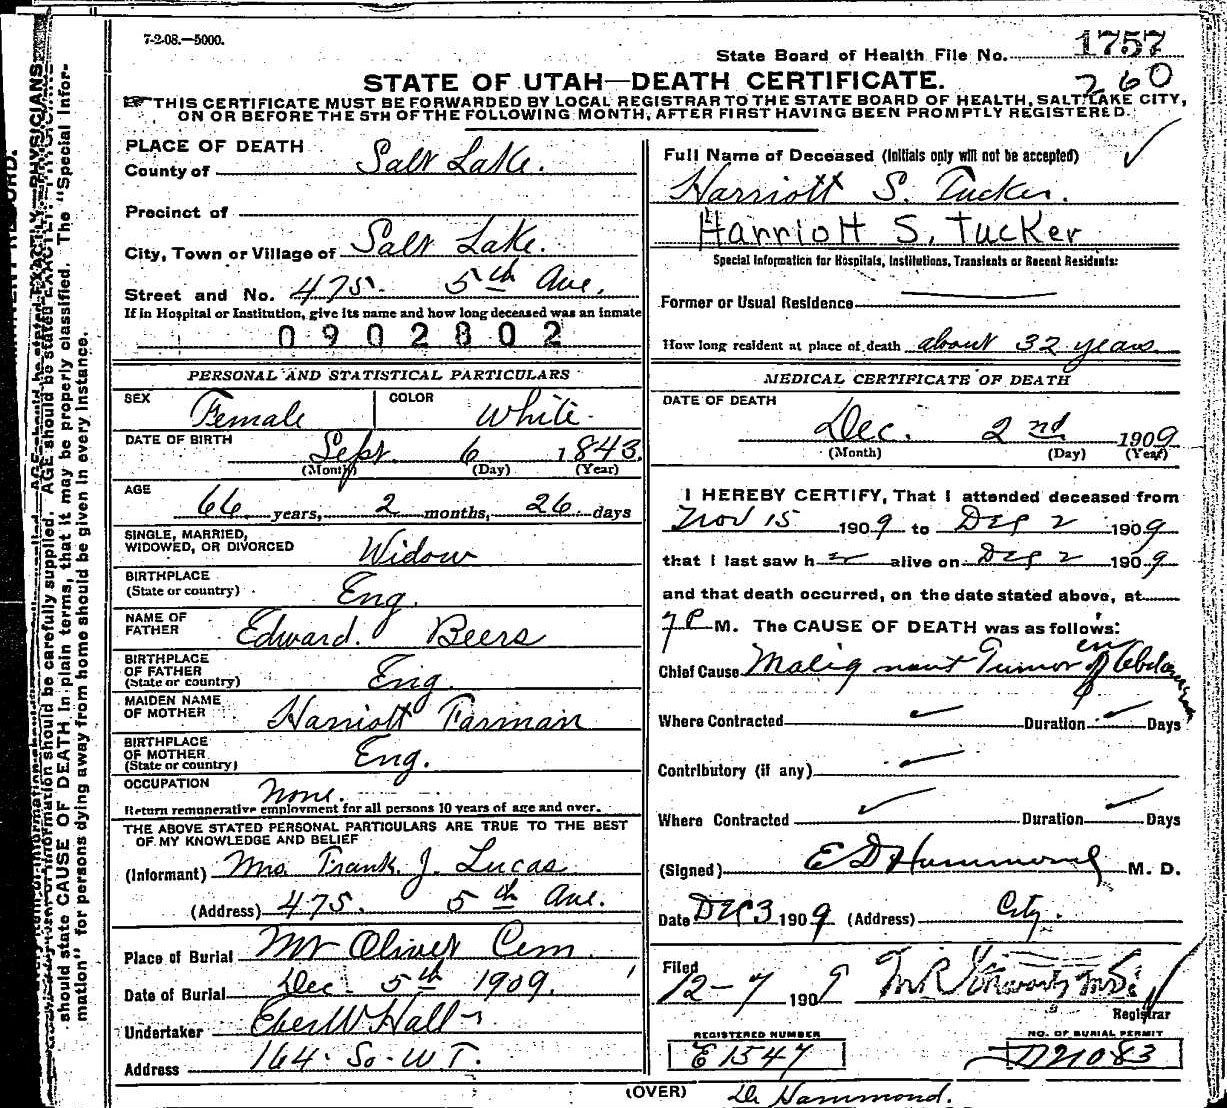 7-2-08.—5000.
State Board of Health File No. 1757
260
STATE OF UTAH—DEATH CERTIFICATE.
THIS CERTIFICATE MUST BE FORWARDED BY LOCAL REGISTRAR TO THE STATE BOARD OF HEALTH, SALT LAKE CITY,
ON OR BEFORE THE 5TH OF THE FOLLOWING MONTH, AFTER FIRST HAVING BEEN PROMPTLY REGISTERED.
PLACE OF DEATH
County of Salt Lake.
Precinct of
City, Town or Village of Salt Lake.
Street and No. 475. 5th Ave.
If in Hospital or Institution, give its name and how long deceased was an inmate
0902802
Full Name of Deceased (Initials only will not be accepted)
Harriott S. Tucker.
Harriott S. Tucker
Special Information for Hospitals, Institutions, Transients or Recent Residents:
Former or Usual Residence
How long resident at place of death about 32 years
PERSONAL AND STATISTICAL PARTICULARS
SEX Female COLOR White.
DATE OF BIRTH Sept. 6 1843.
(Month) (Day) (Year)
AGE 66 years, 2 months, 26 days
SINGLE, MARRIED,
WIDOWED, OR DIVORCED Widow
BIRTHPLACE
(State or country) Eng.
NAME OF
FATHER Edward. Beers
BIRTHPLACE
OF FATHER
(State or country) Eng.
MAIDEN NAME
OF MOTHER Harriott Farman
BIRTHPLACE
OF MOTHER
(State or country) Eng.
OCCUPATION None.
Return remunerative employment for all persons 10 years of age and over.
THE ABOVE STATED PERSONAL PARTICULARS ARE TRUE TO THE BEST
OF MY KNOWLEDGE AND BELIEF
(Informant) Mrs. Frank. J. Lucas
(Address) 475. 5th Ave.
Place of Burial Mt Olivet Cem
Date of Burial Dec. 5th 1909.
Undertaker Eber W Hall
Address 164. So. W T.
MEDICAL CERTIFICATE OF DEATH
DATE OF DEATH
Dec. 2nd 1909
(Month) (Day) (Year)
I HEREBY CERTIFY, That I attended deceased from
Nov 15 1909 to Dec 2 1909
that I last saw h er alive on Dec 2 1909
and that death occurred, on the date stated above, at
7 P M. The CAUSE OF DEATH was as follows:
Chief Cause Malignant Tumor of
Where Contracted Duration Days
Contributory (if any)
Where Contracted Duration Days
(Signed) E D Hammond M. D.
Date Dec 3 1909 (Address) City.
Filed
12-7 1909
Registrar
REGISTERED NUMBER
E 1547
NO. OF BURIAL PERMIT
D21083
(OVER) Dr Hammond.
AGE should be stated EXACTLY. PHYSICIANS
should state CAUSE OF DEATH in plain terms, that it may be properly classified. The "Special Infor-
mation" for persons dying away from home should be given in every instance.